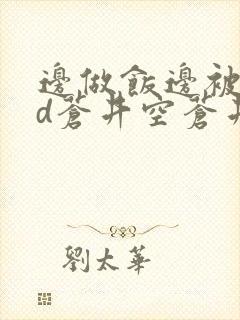 邊做飯邊被
d蒼井空蒼井
劉太華